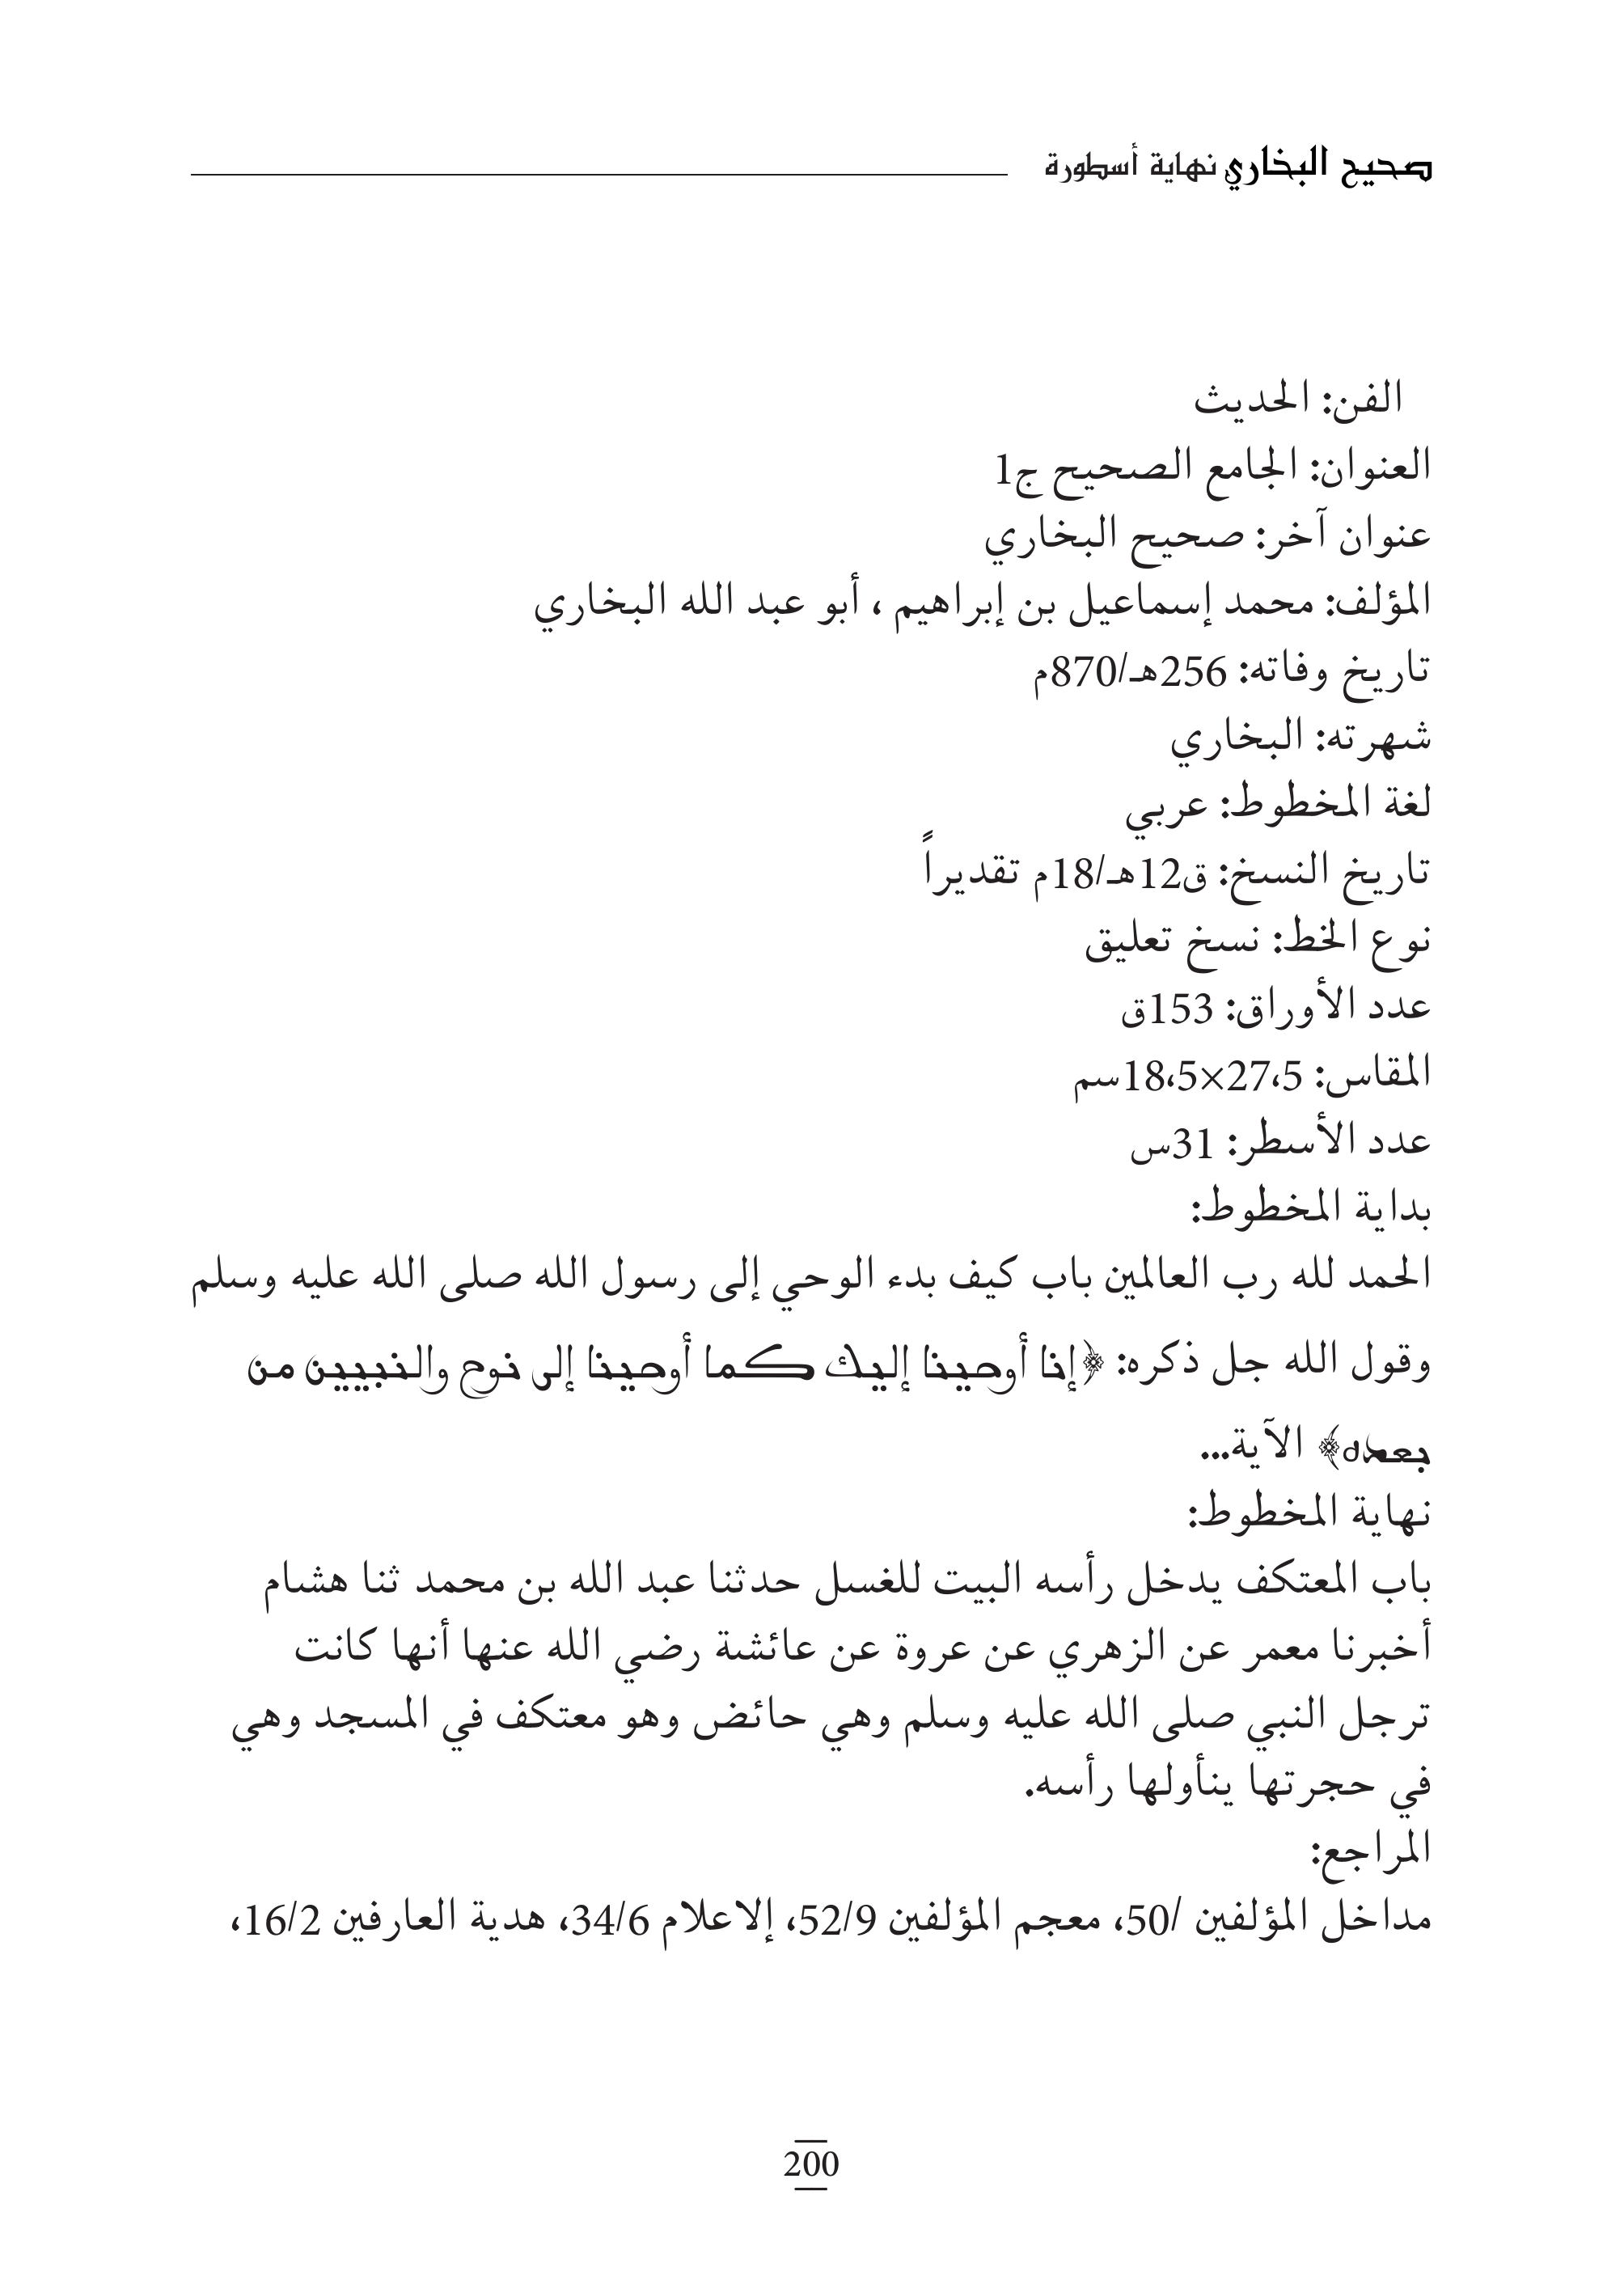 صحيح البخاري نهاية أسطورة
الفن: الحديث
العنوان: الجامع الصحيح ج1
عنوان آخر: صحيح البخاري
المؤلف: محمد إسماعيل بن إبراهيم ، أبو عبد الله البخاري
تاريخ وفاته: 256هـ/870م
شهرته: البخاري
لغة المخطوط: عربي
تاريخ النسخ: ق12هـ/18م تقديراً
نوع الخط: نسخ تعليق
عدد الأوراق: 153ق
المقاس: 27،5×18،5سم
عدد الأسطر: 31س
بداية المخطوط:
الحمد لله رب العالمين باب كيف بدء الوحي إلى رسول الله صلى الله عليه وسلم
وقول الله جل ذكره: ﴿إنا أوحينا إليك كما أوحينا إلى نوح والنبيين من
بعده﴾ الآية...
نهاية المخطوط:
باب المعتكف يدخل رأسه البيت للغسل حدثنا عبد الله بن محمد ثنا هشام
أخبرنا معمر عن الزهري عن عروة عن عائشة رضي الله عنها أنها كانت
ترجل النبي صلى الله عليه وسلم وهي حائض وهو معتكف في المسجد وهي
في حجرتها ينأولها رأسه.
المراجع:
مداخل المؤلفين /50، معجم المؤلفين 52/9، إلاعلام 34/6، هدية العارفين 16/2،
200